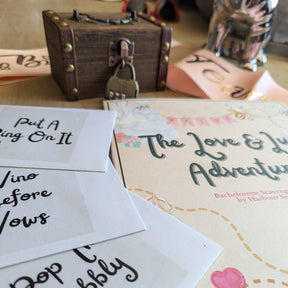 Put A
Ring On It
Vino
Before
Vows
Pop T
bbly
The Love & Lu
Adventu
Bachelorette Scaven
by Harbour Sc